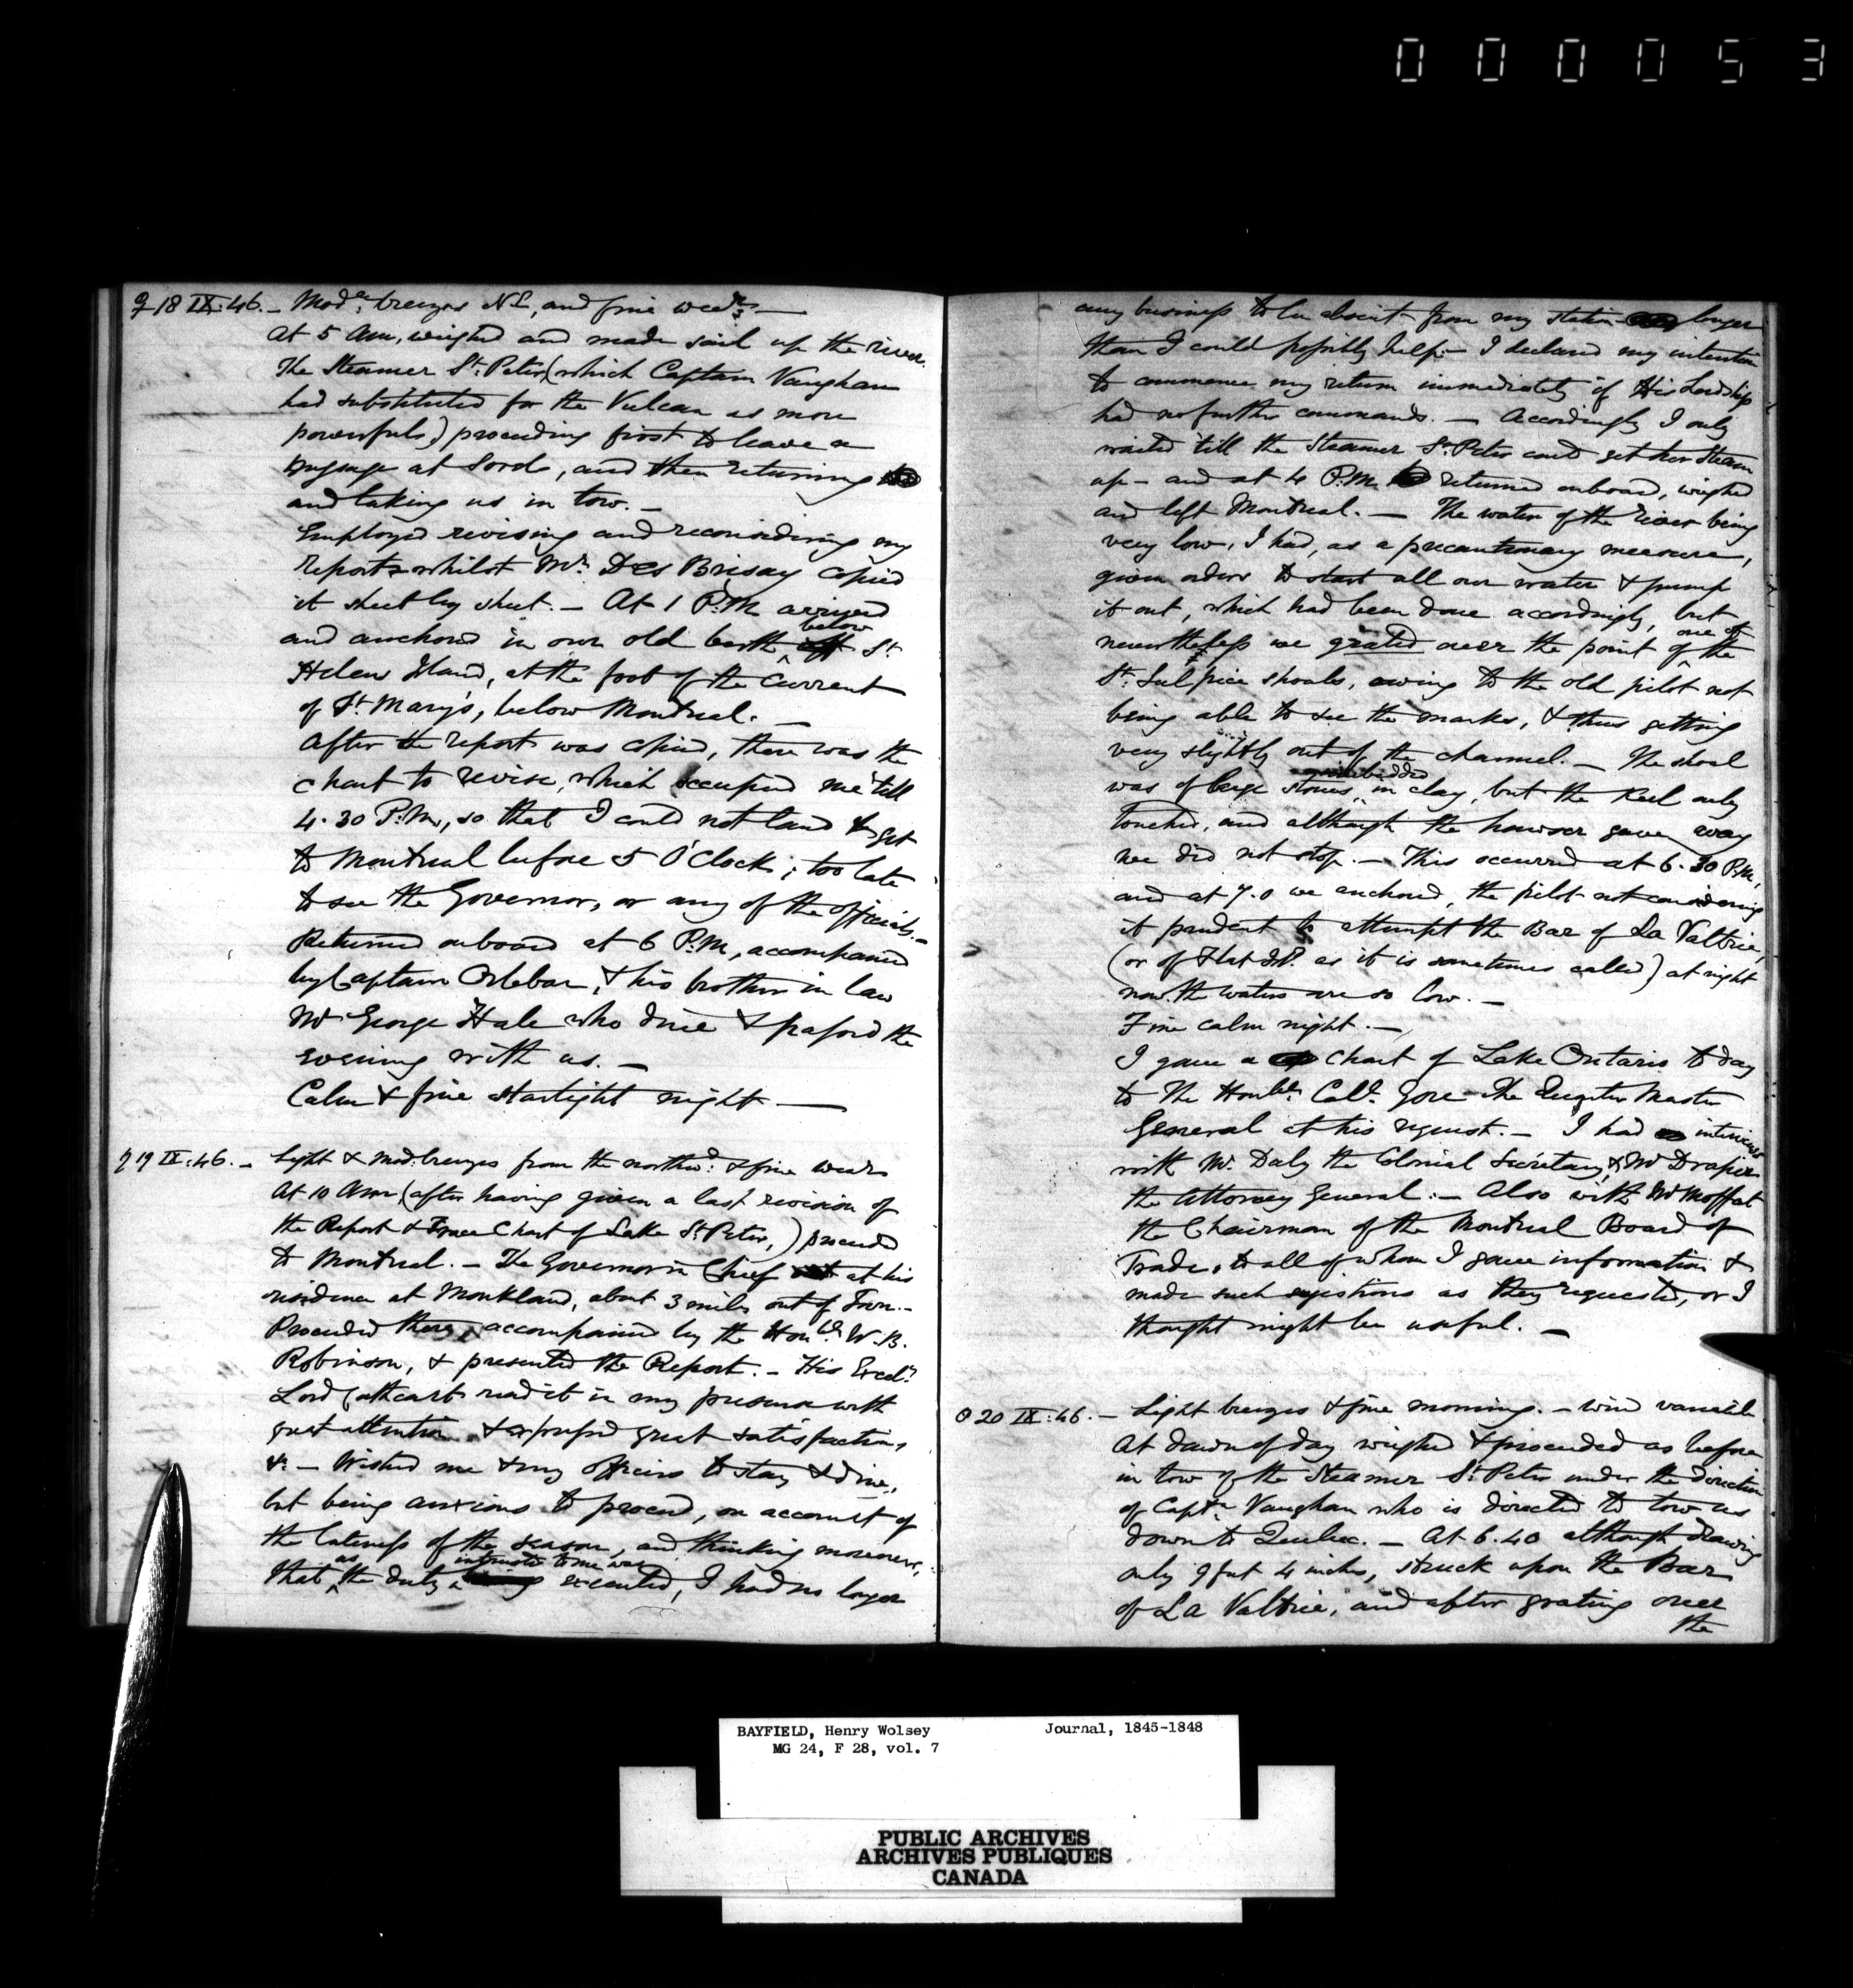 000053
♀ 18 IX:46. - Modte breezes NE, and fine weathr. —
At 5 Am, weighed and made sail up the river.
The Steamer St. Peter, (which Captain Vaughan
had substituted for the Vulcan as more
powerful,) proceeding first to leave a
message at Sorel, and then returning
and taking us in tow. -
Employed revising and reconsidering my
report whilst Mr. Des Brisay copied
it sheet by sheet. - At 1 P.M arrived
and anchored in our old berth below St.
Helens Island, at the foot of the Current
of St. Mary's, below Montreal. —
After the report was copied, there was the
chart to revise, which occupied me till
4.30 P.M, so that I could not land & get
to Montreal before 5 O'Clock; too late
to see the Governor, or any of the officials. -
Returned onboard at 6 P.M, accompanied
by Captain Orlebar, & his brother in law
Mr George Hale who dine & passed the
evening with us. -
Calm & fine starlight night. —
19 IX:46. - Light & Mod. breezes from the northwd. & fine wear
At 10 Am (after having given a last revision of
the Report & Trace Chart of Lake St. Peter,) proceeded
to Montreal. - The Governor in Chief at his
residence at Monkland, about 3 miles out of Town. -
Proceeded there, accompanied by the Honble W. B.
Robinson, & presented the Report. - His Excely
Lord Cathcart read it in my presence with
great attention & expressed great satisfaction,
&c - Wished me & my officers to stay & dine,
but being anxious to proceed, on account of
the lateness of the season, and thinking moreover,
that as the duty intrusted to me was executed, I had no longer
any business to be absent from my station longer
than I could possibly help. - I declared my intention
to commence my return immediately if His Lordship
had no further commands. — Accordingly I only
waited till the Steamer St. Peter could get her steam
up - and at 4 P.M. returned onboard, weighed
and left Montreal. — The water of the river being
very low, I had, as a precautionary measure,
given orders to start all our water & pump
it out, which had been done accordingly, but
nevertheless we grated over the point of one of the
St. Sulpice shoals, owing to the old pilot not
being able to see the marks, & thus getting
very slightly out of the channel. - The shoal
was of large stones imbedded in clay, but the keel only
touched, and although the hawser gave way
we did not stop. - This occurred at 6.30 P.M,
and at 7.0 we anchored, the pilot not considering
it prudent to attempt the Bar of La Valtrie,
(or of Flat Id. as it is sometimes called) at night
now the waters are so low. -
Fine calm night. -
I gave a chart of Lake Ontario to day
to The Honble. Coll. Gore the Quarter Master
General at his request. - I had interviews
with Mr. Daly the Colonial Secretary & Mr Draper
the Attorney General. - Also with Mr Moffat
the Chairman of the Montreal Board of
Trade, to all of whom I gave information &
made such sugestions as they requested, or I
thought might be useful. —
☉ 20 IX:46. - Light breezes & fine morning. - wind variable
At dawn of day weighed & proceeded as before
in tow of the Steamer St. Peter under the direction
of Captn Vaughan who is directed to tow us
down to Quebec. - At 6.40 although drawing
only 9 feet 4 inches, struck upon the Bar
of La Valtrie, and after grating over
the
BAYFIELD, Henry Wolsey Journal, 1845-1848
MG 24, F 28, vol. 7
PUBLIC ARCHIVES
ARCHIVES PUBLIQUES
CANADA